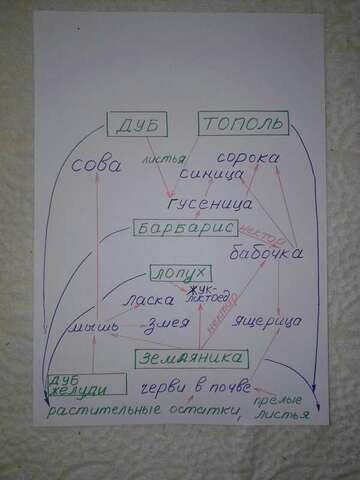 ДУБ
ТОПОЛЬ
листья
сова
сорока
синица
гусеница
БАРБАРИС
нектар
бабочка
ЛОПУХ
жук-
листоед
ласка
нектар
мышь
змея
ящерица
ЗЕМЛЯНИКА
ДУБ
ЖЕЛУДИ
черви в почве
растительные остатки,
прелые
листья